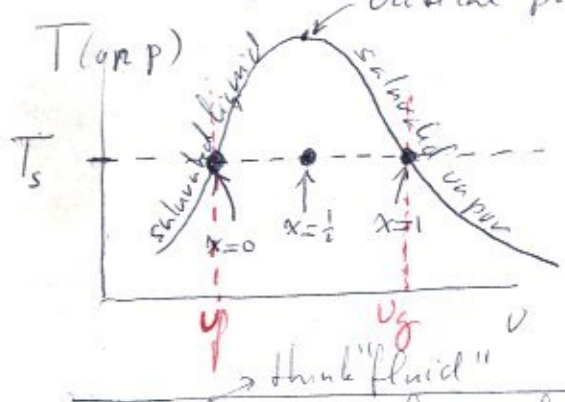 critical p
T(or p)
saturated liquid
saturated vapor
T_s
x=0
x=½
x=1
v_f
v_g
v
think "fluid"